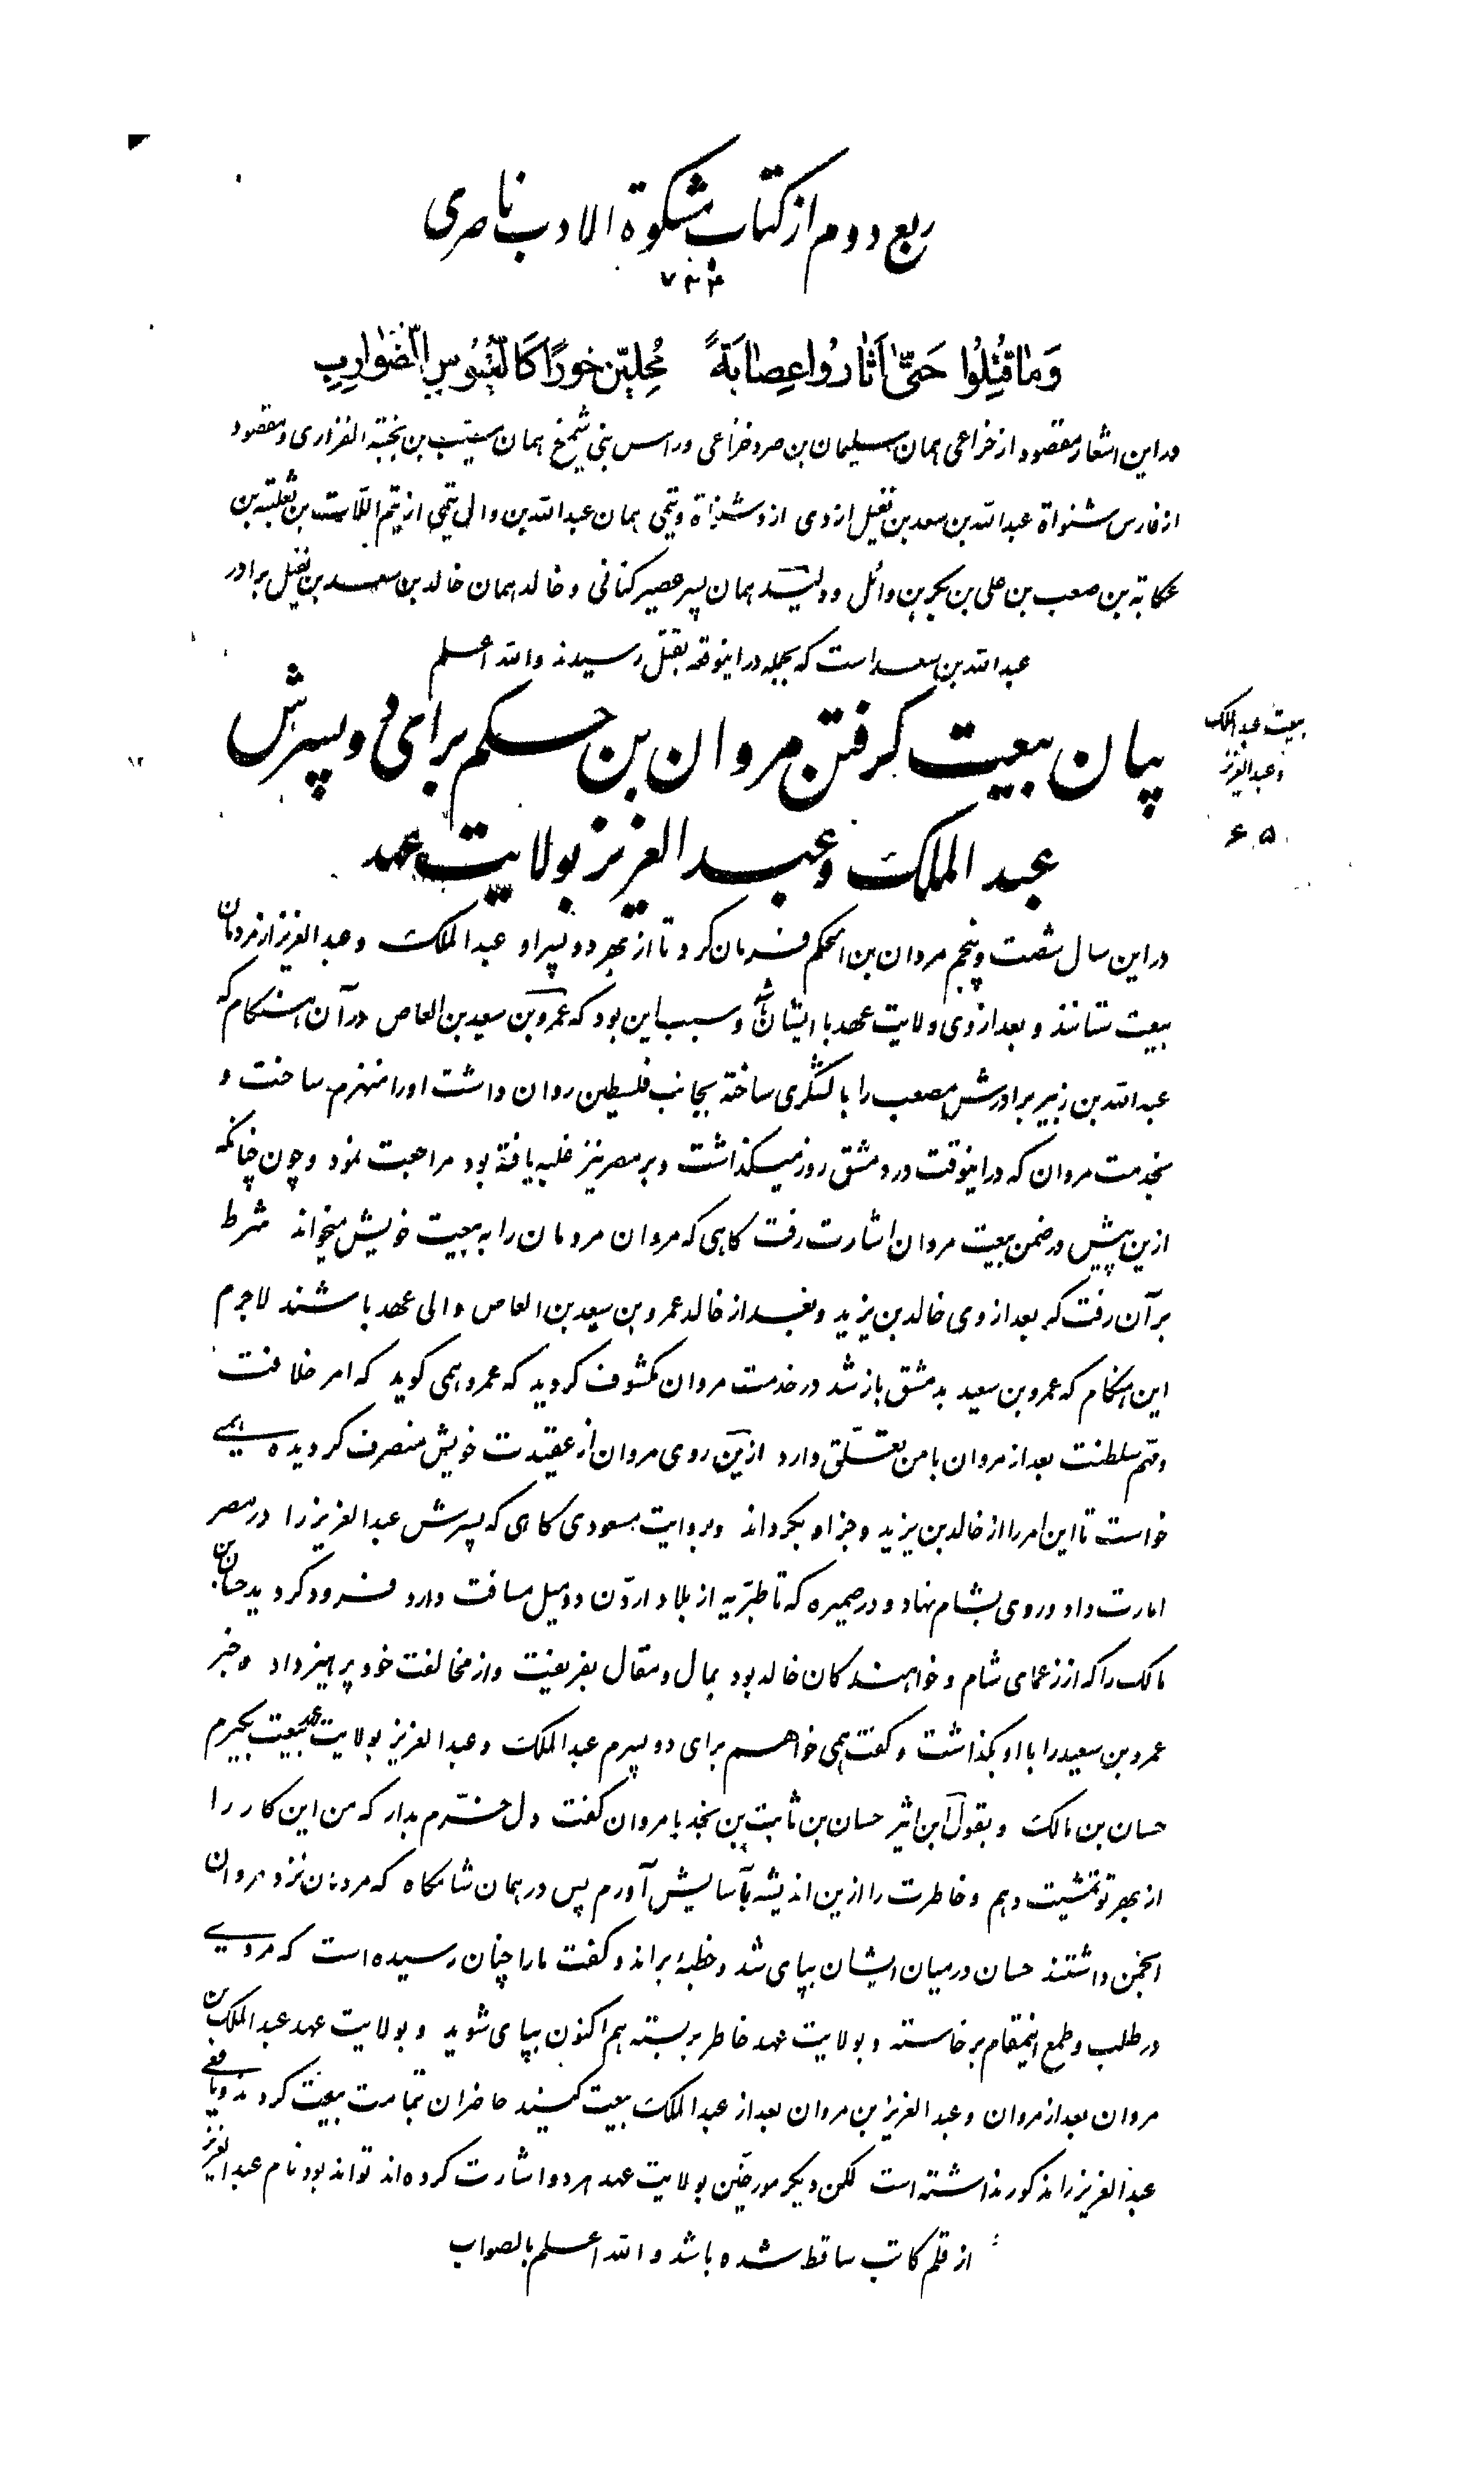 ربع دوم از کتاب مشکوة الادب ناصری
۷۴۴
وَمٰا قُتِلُوا حَتّىٰ اَثٰارُوا عِصٰابَةً مُحِلّیٖن خورًا كَاللُّیُوسِ الضَّوٰارِبِ
در این اشعار مقصود از خزاعی همان سلیمان بن صرد خزاعی و راس بنی شمخ همان مسیّب بن نجبته الفزاری و مقصود
از فارس شنواة عبدالله بن سعد بن نفیل ازدی ازد شنواة و تیمی همان عبدالله بن والی تیمی از تیم اللّات بن ثعلبته بن
عکابة بن صعب بن علی بن بکر بن وائل و ولید همان پسر عصیر کنانی و خالد همان خالد بن سعد بن نفیل برادر
عبدالله بن سعد است که بجمله در اینوقعه بقتل رسیدند والله اعلم
بیان بیعت گرفتن مروان بن حکم برای دو پسرش
عبد الملک و عبد العزیز بولایت عهد
بیعت عبد الملک
و عبد العزیز
۶۵
در این سال شصت و پنجم مروان بن الحکم فرمان کرد تا از بهر دو پسر او عبد الملک و عبد العزیز از مردمان
بیعت ستانند و بعد از وی ولایت عهد با ایشان باشد و سبب این بود که عمرو بن سعید بن العاص در آن هنگام که
عبدالله بن زبیر برادرش مصعب را با لشگری ساخته بجانب فلسطین روان داشت او را منهزم ساخت و
بخدمت مروان که در اینوقت در دمشق روز میگذاشت و بر مصر نیز غلبه یافته بود مراجعت نمود و چون چنانکه
ازین پیش در ضمن بیعت مروان اشارت رفت گاهی که مروان مردمان را به بیعت خویش میخواند شرط
بر آن رفت که بعد از وی خالد بن یزید و بعد از خالد عمرو بن سعید بن العاص والی عهد باشند لاجرم
این هنگام که عمرو بن سعید بدمشق باز شد در خدمت مروان مکشوف گردید که عمرو همی گوید که امر خلافت
و مهّم سلطنت بعد از مروان با من تعلّق دارد ازین روی مروان از عقیدت خویش منصرف گردیده همی
خواست تا این امر را از خالد بن یزید و جز او بگرداند و بروایت مسعودی گاهی که پسرش عبد العزیز را در مصر
امارت داد و روی بشام نهاد و در صمیره که تا طبرّیه از بلاد اردّن دو میل مسافت دارد فرود گردید حسان بن
مالک را که از زعمای شام و خواهندگان خالد بود بمال و مقال بفریفت و از مخالفت خود پرهیز داد و خبر
عمرو بن سعید را با او بگذاشت و گفت همی خواهم برای دو پسرم عبد الملک و عبد العزیز بولایت عهد بیعت بگیرم
حسان بن مالک و بقول ابن اثیر حسان بن ثابت بن بخد با مروان گفت دل خرّم بدار که من این کار را
از بهر تو تمشیت دهم و خاطرت را ازین اندیشه بآسایش آورم پس در همان شامگاه که مردمان نزد مروان
انجمن داشتند حسان در میان ایشان بپای شد و خطبهٔ براند و گفت ما را چنان رسیده است که مردمی
در طلب و طمع اینمقام برخاسته و بولایت عهد خاطر بربسته هم اکنون بپای شوید و بولایت عهد عبد الملک بن
مروان بعد از مروان و عبد العزیز بن مروان بعد از عبد الملک بیعت کنید حاضران بتمامت بیعت کردند و یافعی
عبد العزیز را مذکور نداشته است لکن دیگر مورخین بولایت عهد هر دو اشارت کرده اند تواند بود نام عبد العزیز
از قلم کاتب ساقط شده باشد و الله اعلم بالصواب